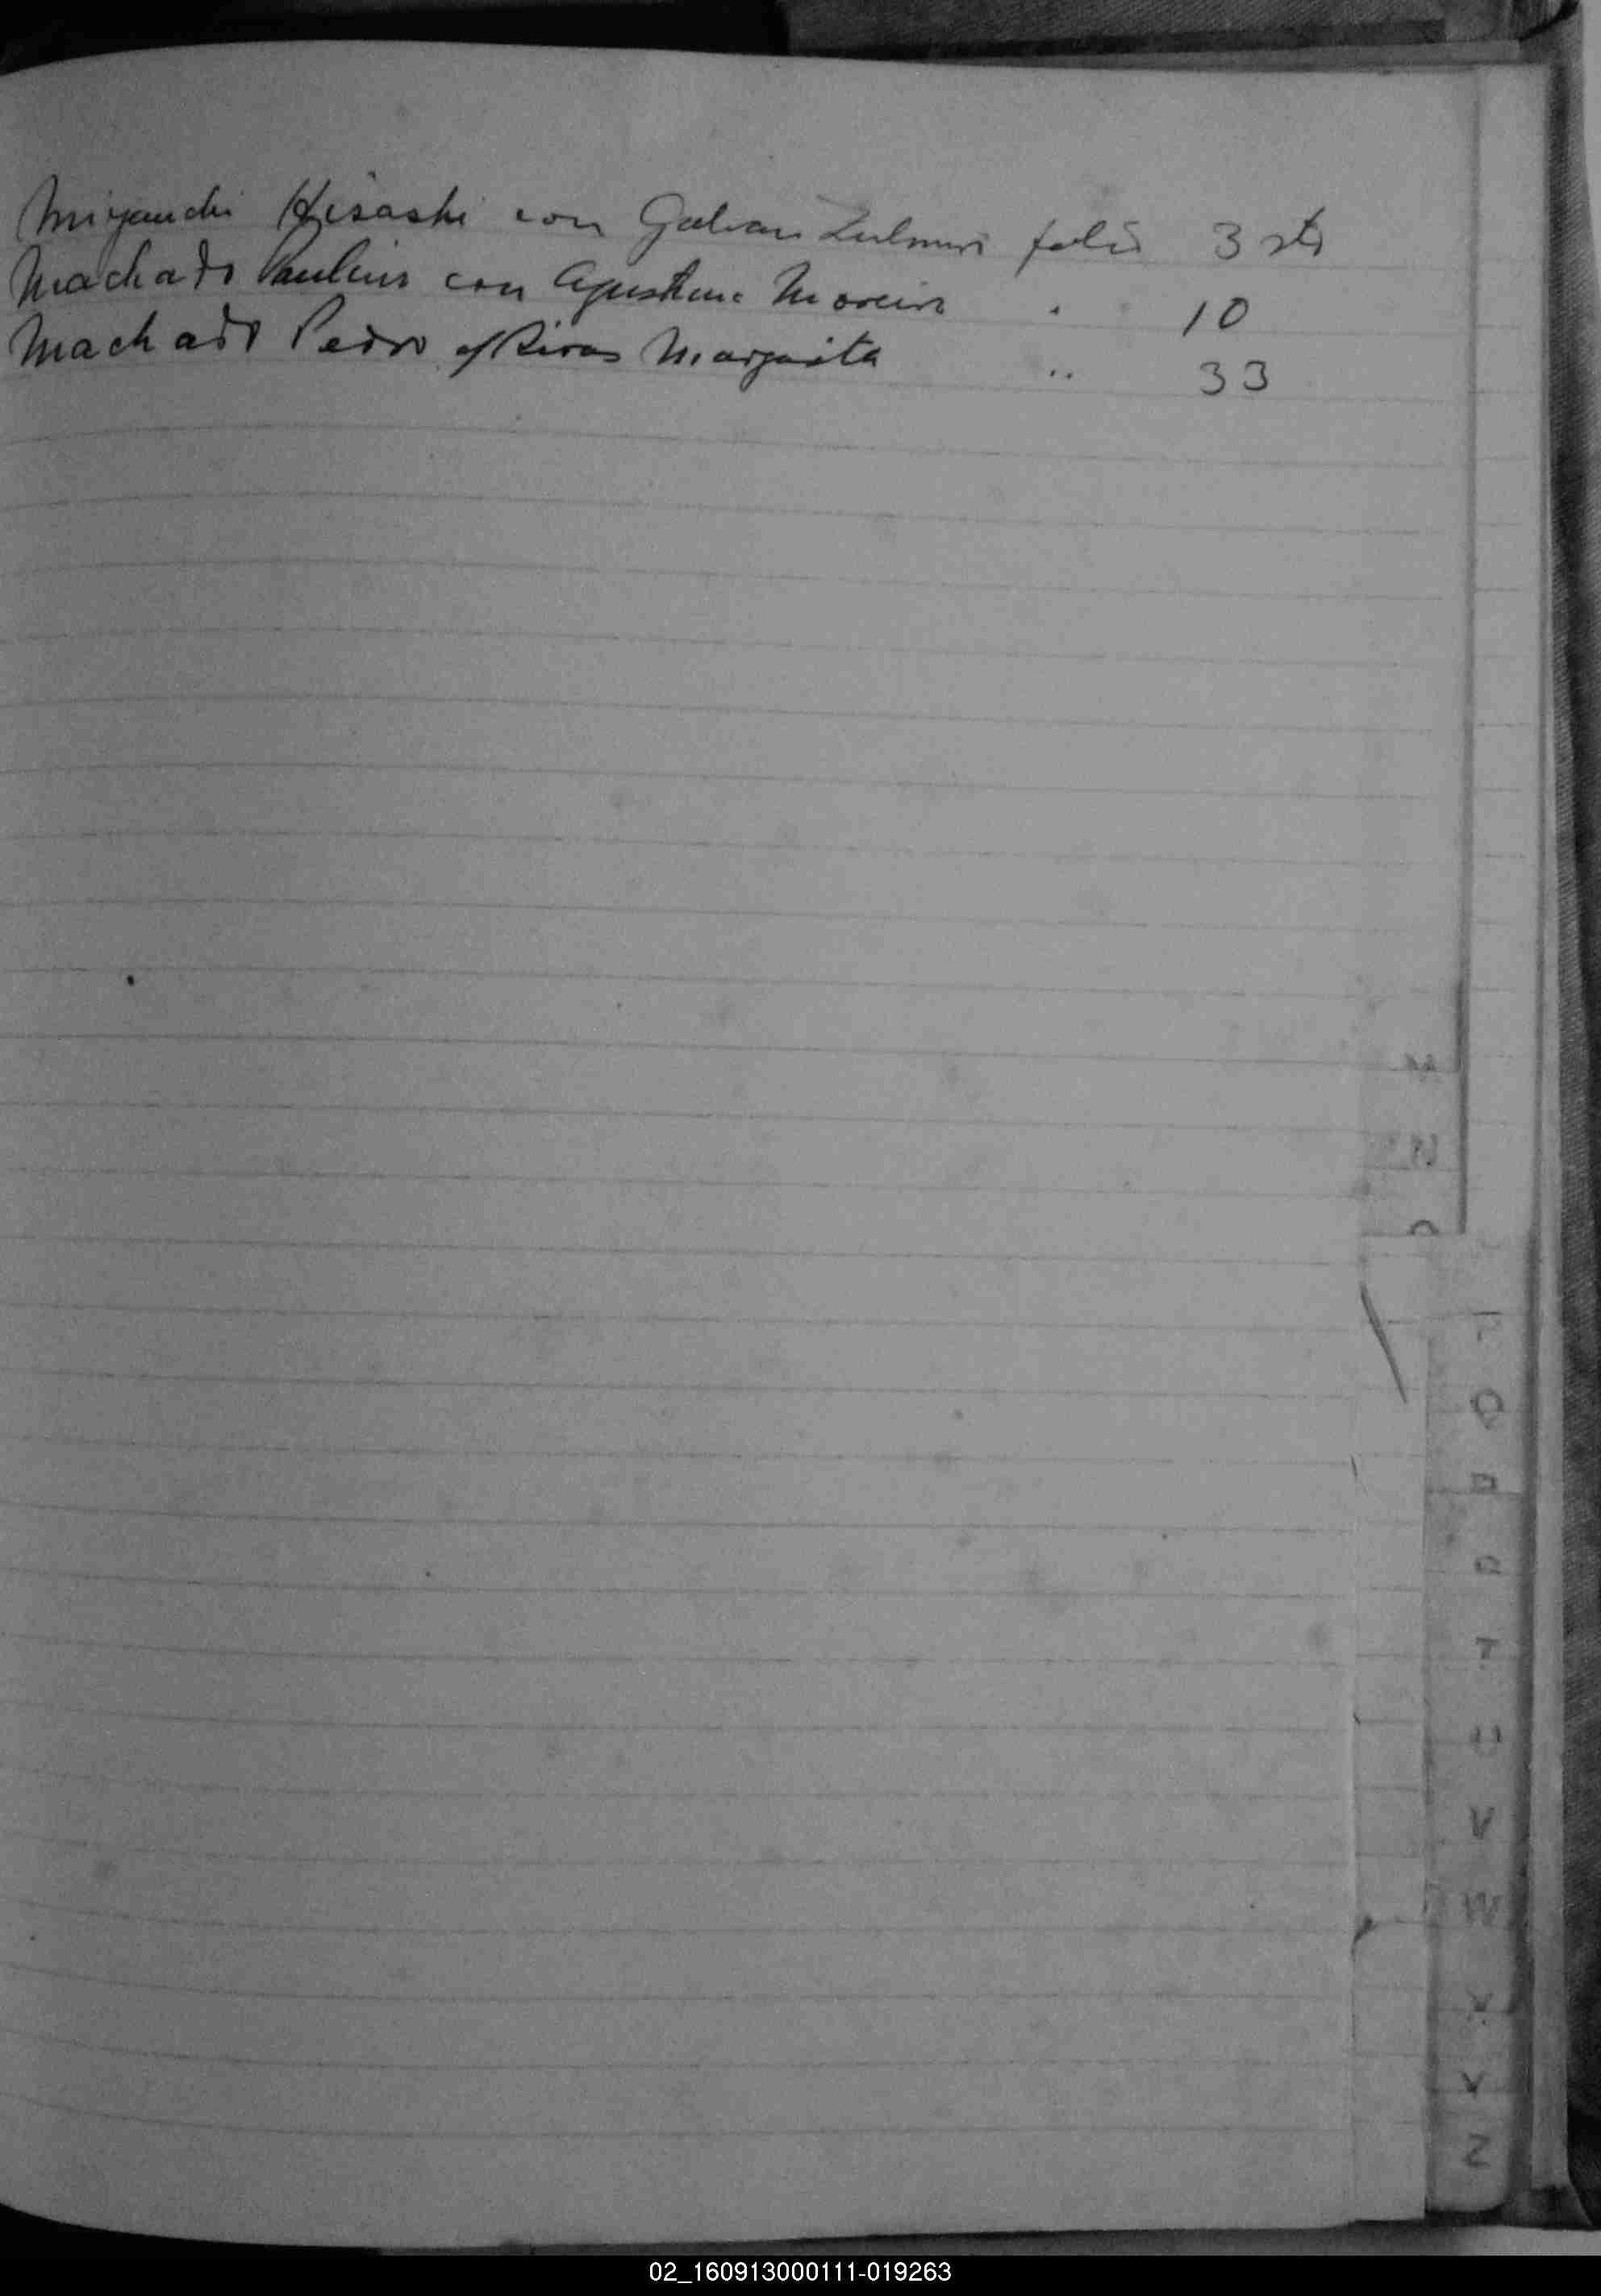 Miyauchi Hisashi con Galvan Zulmira folio 3 vto
Machado Paulino con Agustina Moreira " 10
Machado Pedro c/ Rivas Margarita " 33
M
N
O
P
Q
R
S
T
U
V
W
X
Y
Z
02_160913000111-019263